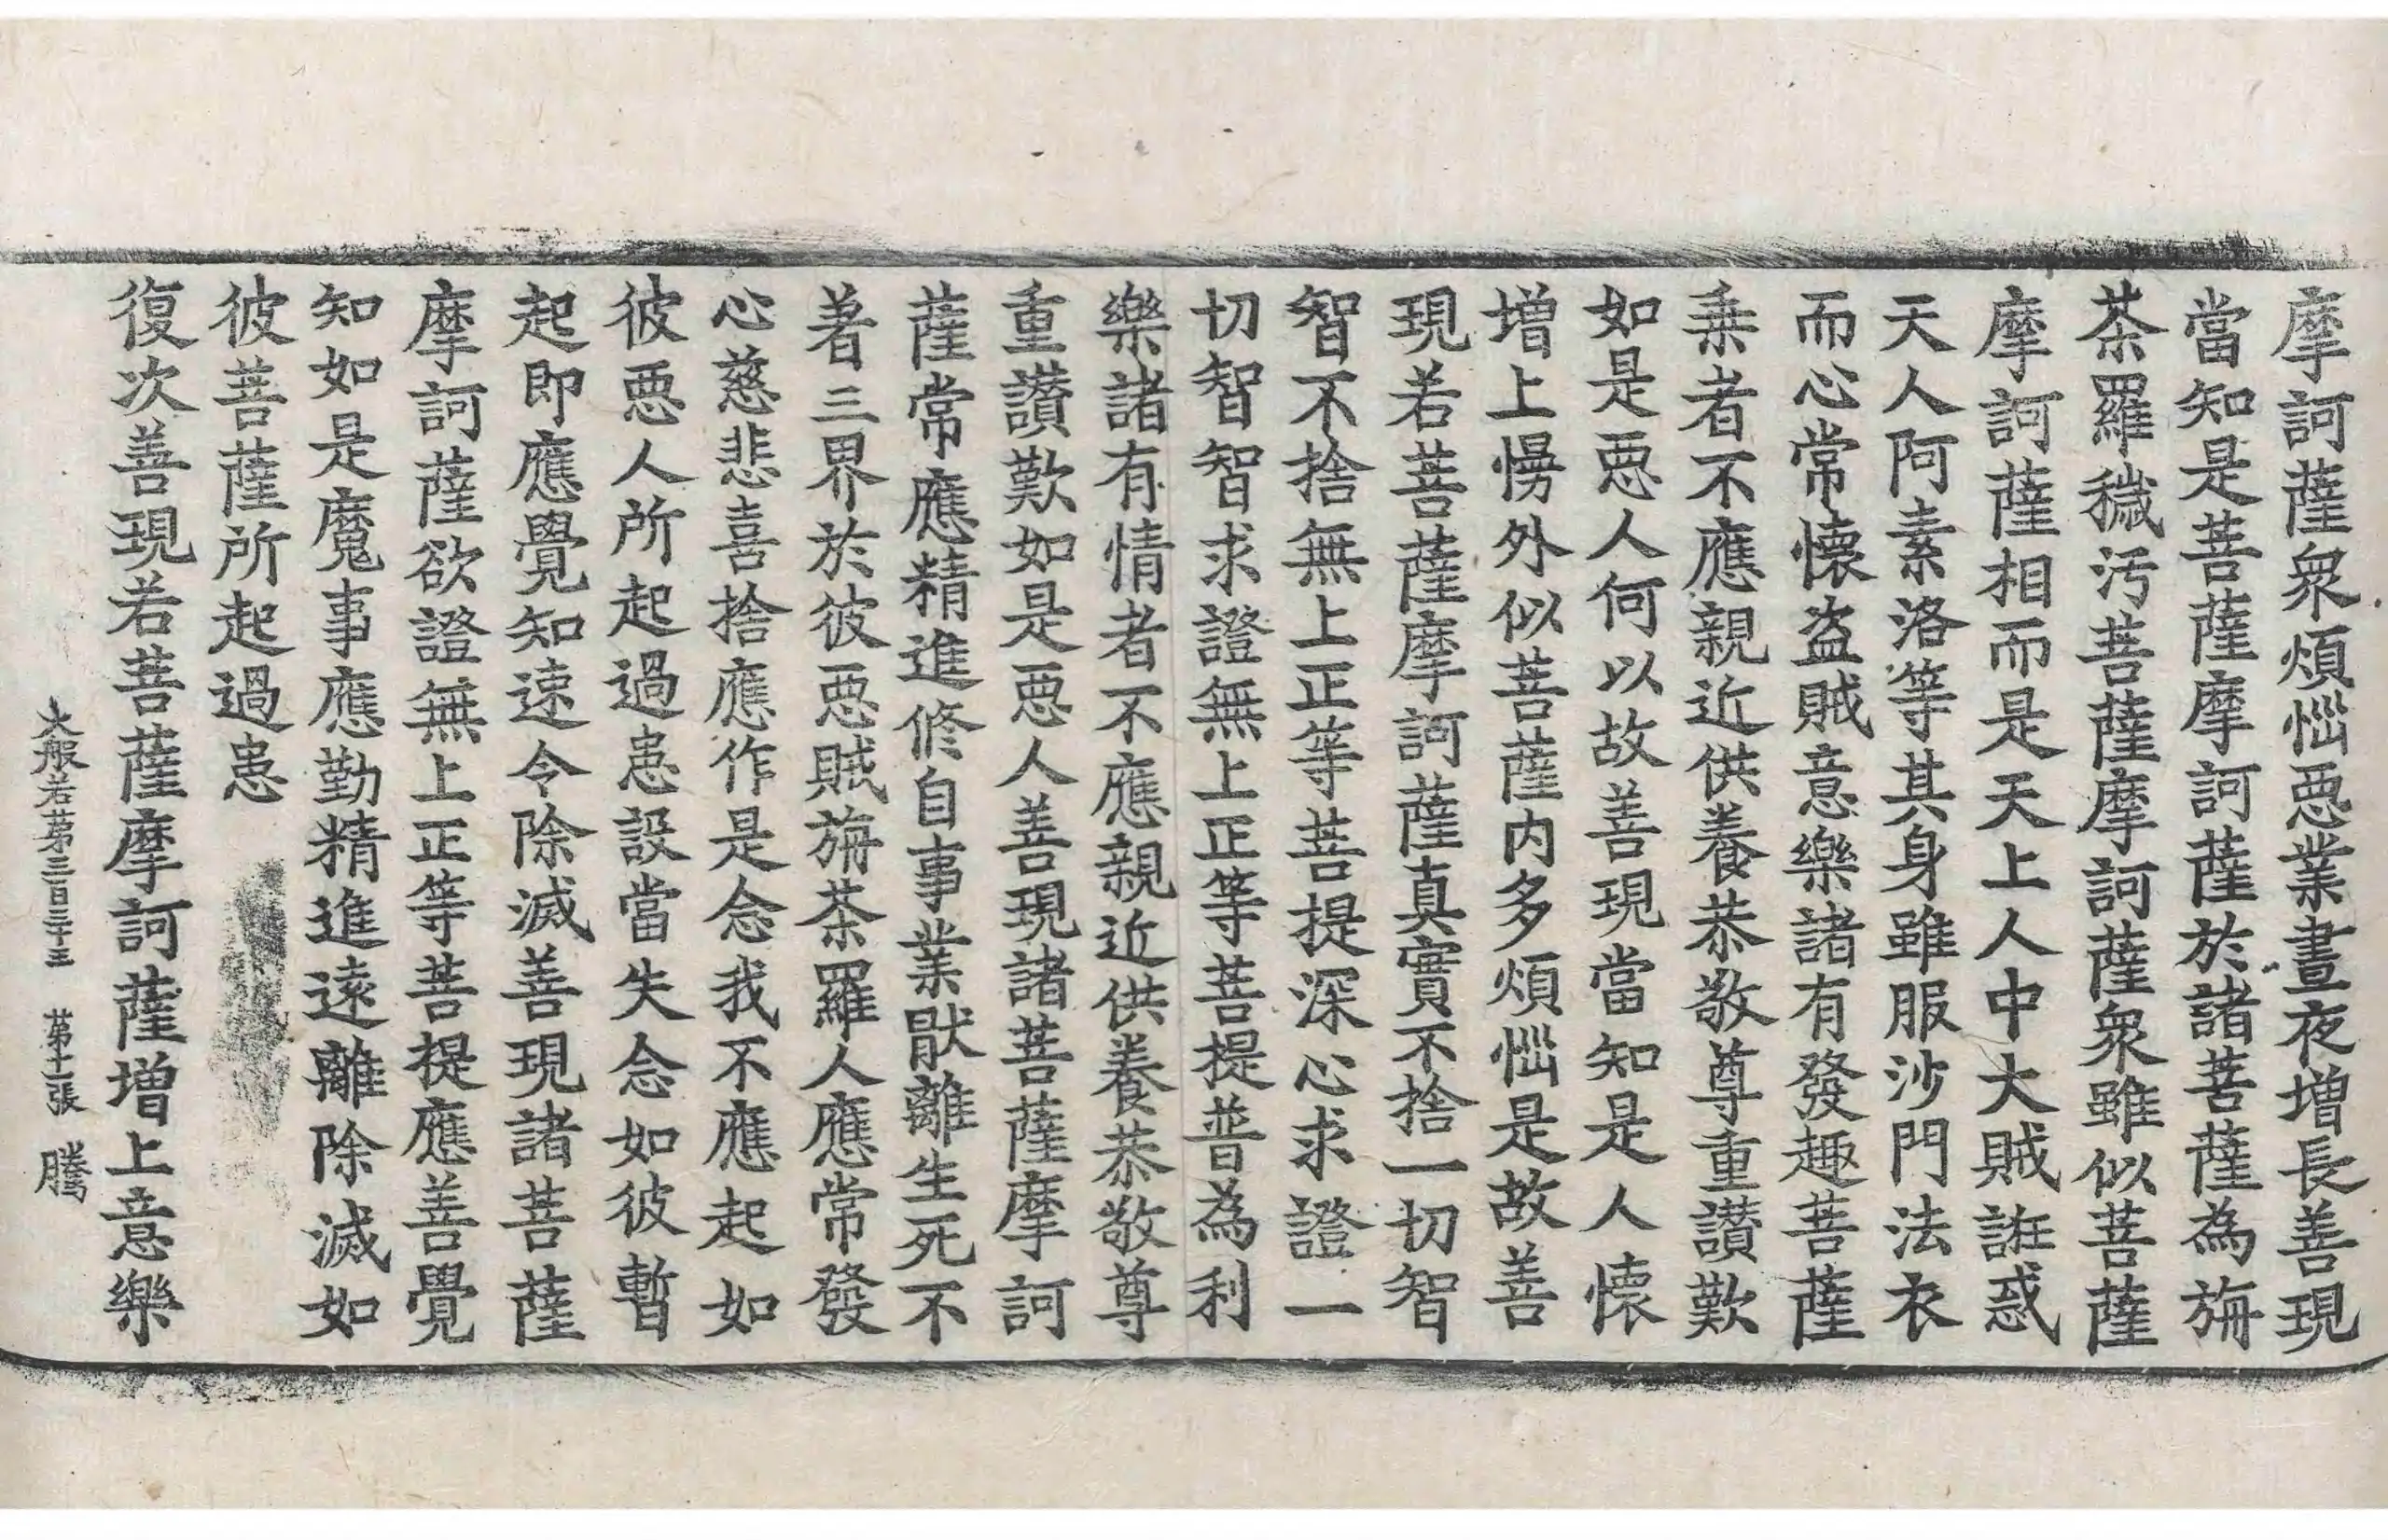 摩訶薩衆煩惱惡業晝夜增長善現
當知是菩薩摩訶薩於諸菩薩為旃
茶羅穢汚菩薩摩訶薩衆雖似菩薩
摩訶薩相而是天上人中大賊誑惑
天人阿素洛等其身雖服沙門法衣
而心常懷盜賊意樂諸有發趣菩薩
乘者不應親近供養恭敬尊重讚歎
如是惡人何以故善現當知是人懷
增上慢外似菩薩内多煩惱是故善
現若菩薩摩訶薩真實不捨一切智
智不捨無上正等菩提深心求證一
切智智求證無上正等菩提普為利
樂諸有情者不應親近供養恭敬尊
重讚歎如是惡人善現諸菩薩摩訶
薩常應精進修自事業猒離生死不
著三界於彼惡賊旃茶羅人應常發
心慈悲喜捨應作是念我不應起如
彼惡人所起過患設當失念如彼暫
起即應覺知速令除滅善現諸菩薩
摩訶薩欲證無上正等菩提應善覺
知如是魔事應勤精進遠離除滅如
彼菩薩所起過患
復次善現若菩薩摩訶薩增上意樂
大般若第三百三十三 第十一張 騰